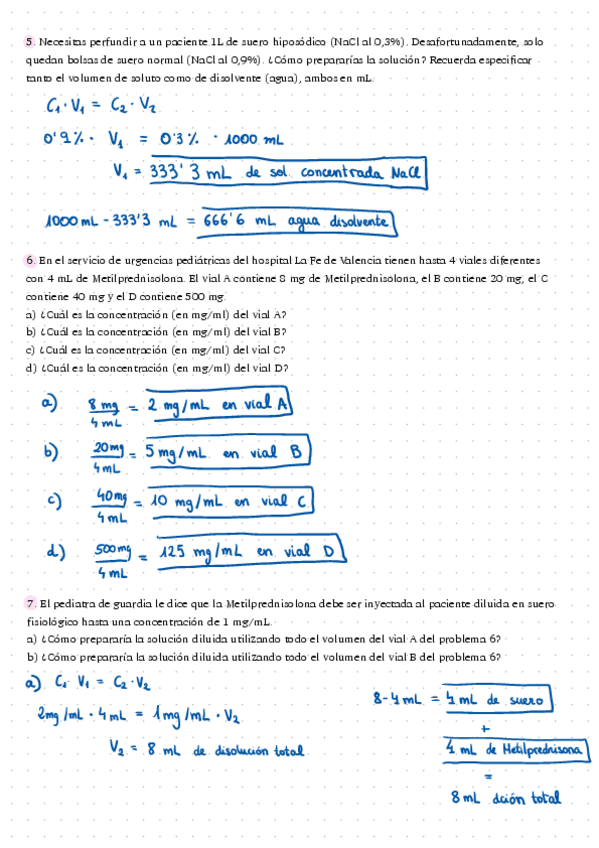 5. Necesitas perfundir a un paciente 1L de suero hiposódico (NaCl al 0,3%). Desafortunadamente, solo
quedan bolsas de suero normal (NaCl al 0,9%). ¿Cómo prepararías la solución? Recuerda especificar
tanto el volumen de soluto como de disolvente (agua), ambos en mL.
C₁·V₁ = C₂·V₂
0'9%· V₁ = 0'3% · 1000 mL
V₁ = 333'3 mL de sol. concentrada NaCl
1000 mL - 333'3 mL = 666'6 mL agua disolvente
6. En el servicio de urgencias pediátricas del hospital La Fe de Valencia tienen hasta 4 viales diferentes
con 4 mL de Metilprednisolona. El vial A contiene 8 mg de Metilprednisolona, el B contiene 20 mg, el C
contiene 40 mg y el D contiene 500 mg.
a) ¿Cuál es la concentración (en mg/ml) del vial A?
b) ¿Cuál es la concentración (en mg/ml) del vial B?
c) ¿Cuál es la concentración (en mg/ml) del vial C?
d) ¿Cuál es la concentración (en mg/ml) del vial D?
a) 8 mg / 4 mL = 2 mg/mL en vial A
b) 20 mg / 4 mL = 5 mg/mL en vial B
c) 40 mg / 4 mL = 10 mg/mL en vial C
d) 500 mg / 4 mL = 125 mg/mL en vial D
7. El pediatra de guardia le dice que la Metilprednisolona debe ser inyectada al paciente diluida en suero
fisiológico hasta una concentración de 1 mg/mL.
a) ¿Cómo prepararía la solución diluida utilizando todo el volumen del vial A del problema 6?
b) ¿Cómo prepararía la solución diluida utilizando todo el volumen del vial B del problema 6?
a) C₁· V₁ = C₂·V₂
2mg/mL · 4 mL = 1mg/mL · V₂
V₂ = 8 mL de disolución total
8-4 mL = 4 mL de suero
+
4 mL de Metilprednisona
=
8 mL dción total